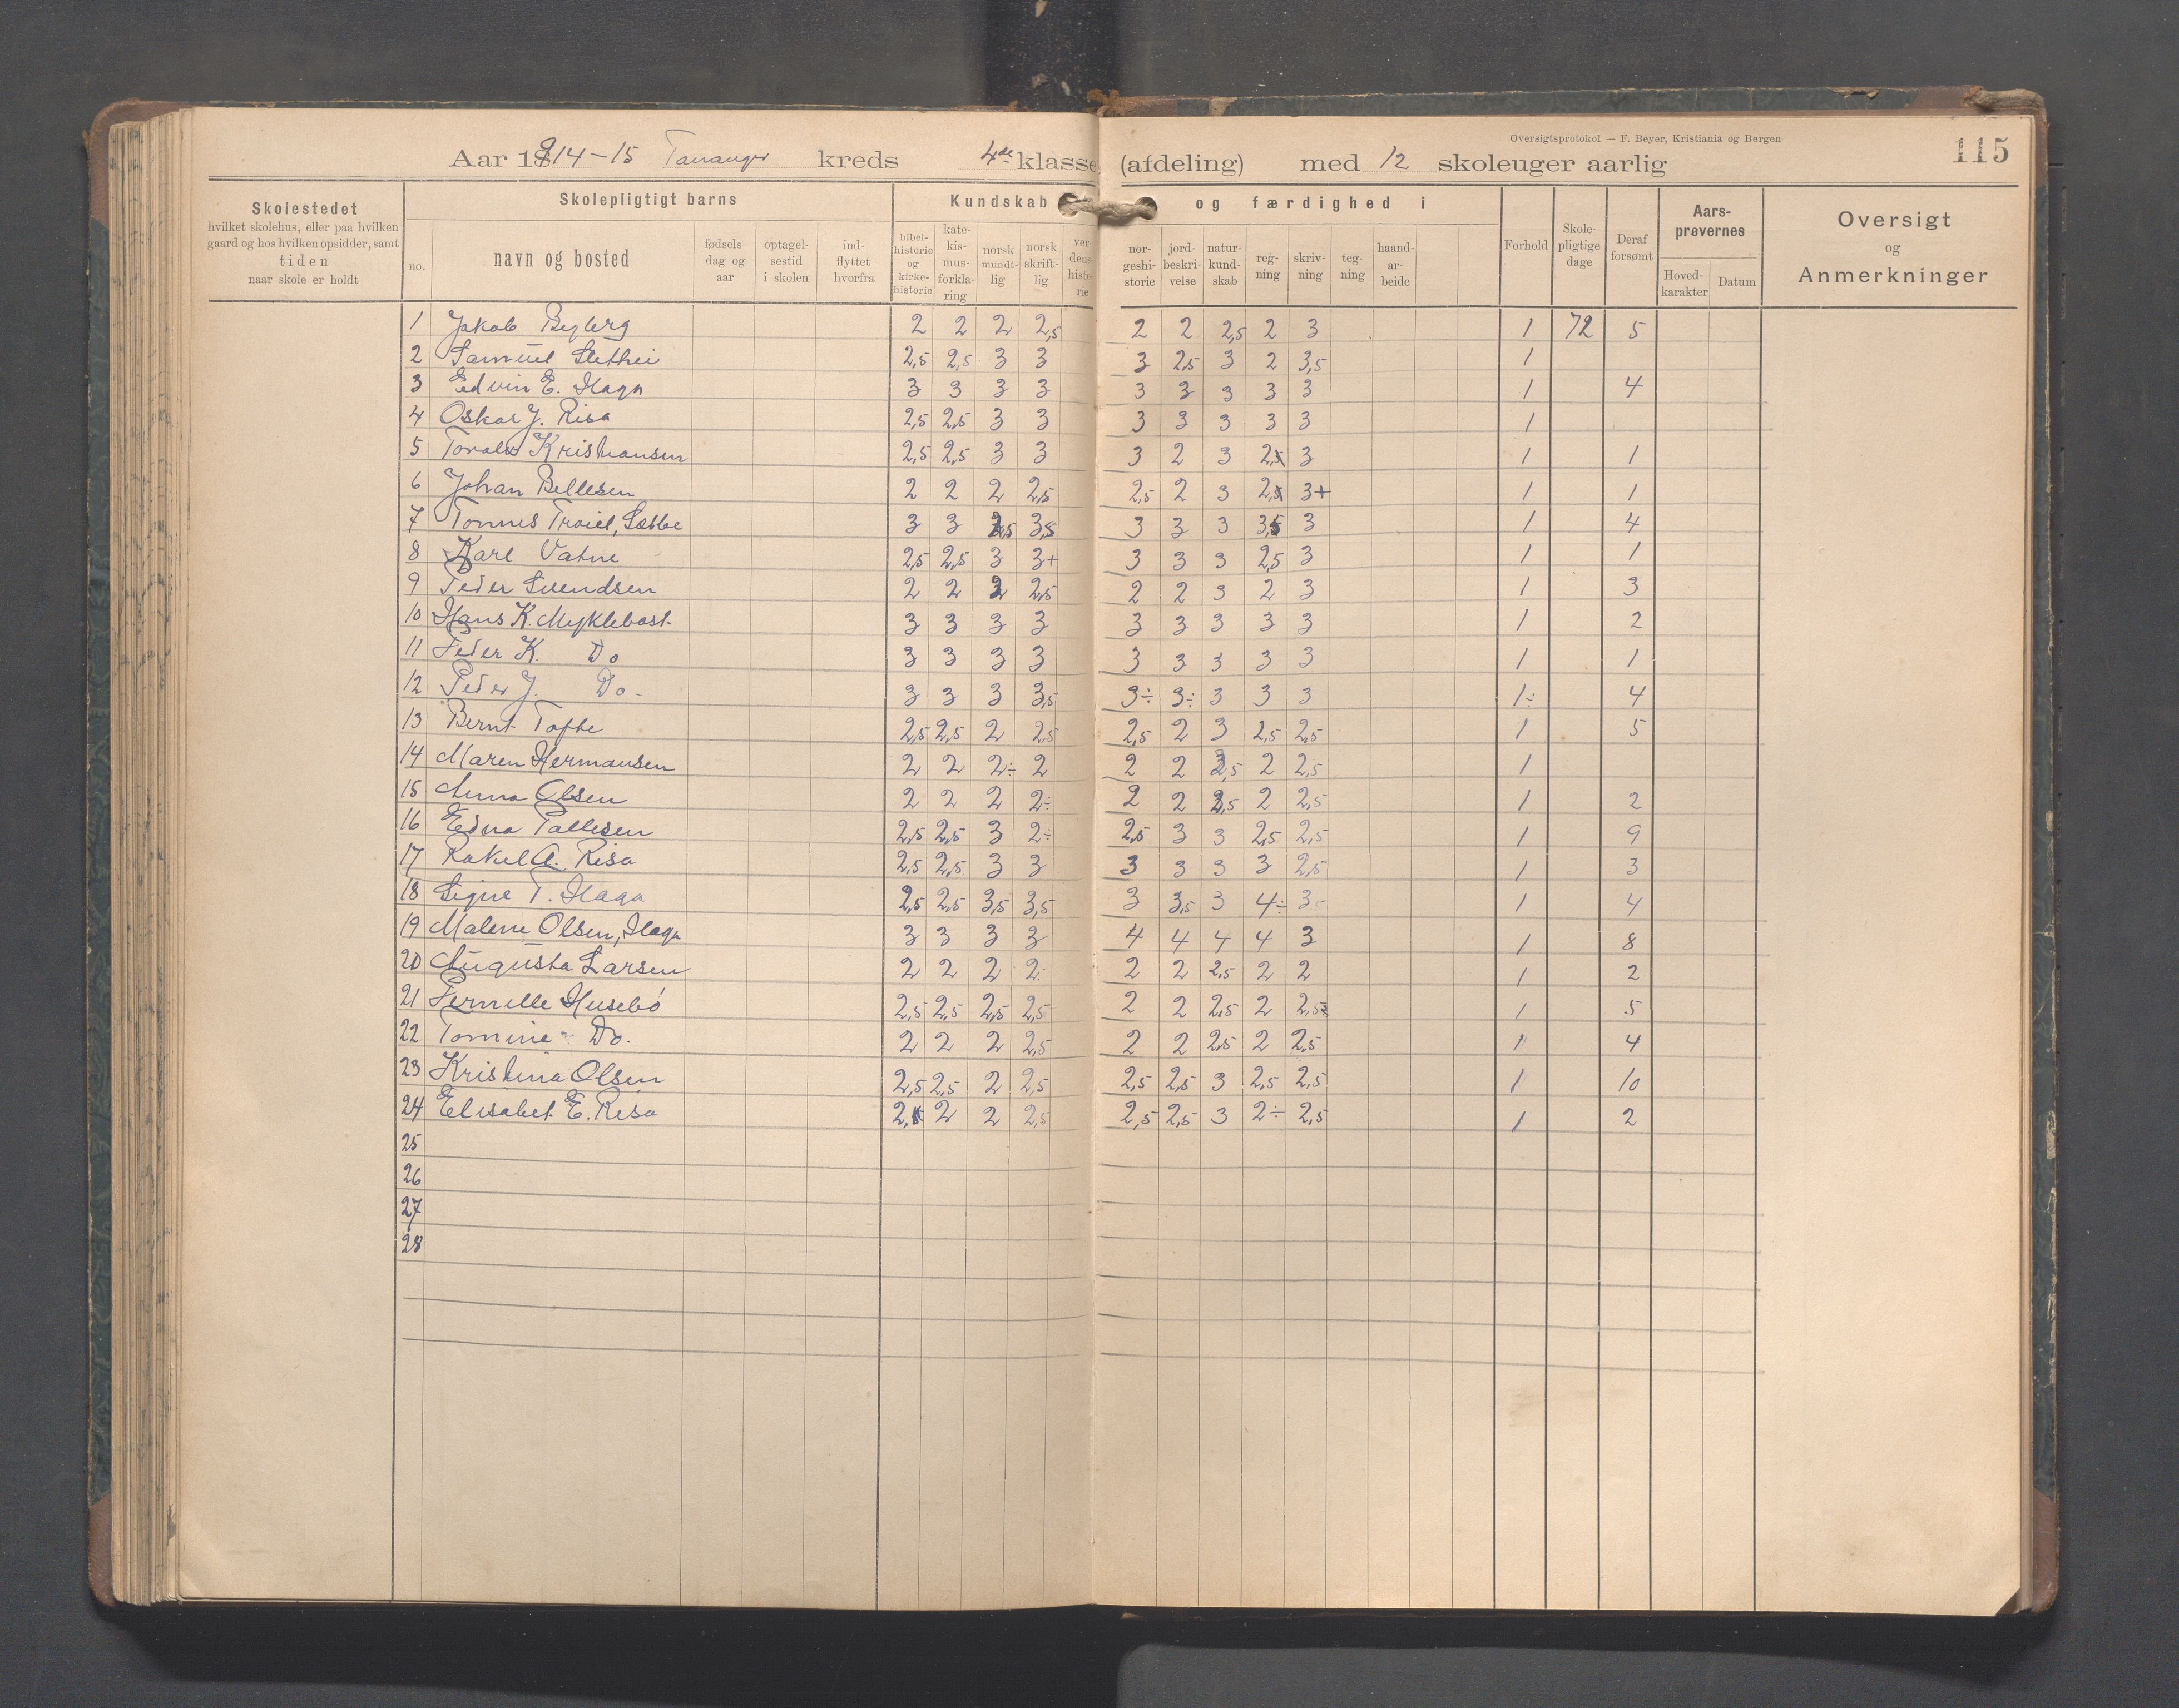 Oversigtsprotokol — F. Beyer, Kristiania og Bergen
115
Aar 1914-15 Tananger kreds 4de klasse (afdeling) med 12 skoleuger aarlig
Skolestedet
hvilket skolehus, eller paa hvilken
gaard og hos hvilken opsidder, samt
tiden
naar skole er holdt
Skolepligtigt barns
no.
navn og bosted
fødsels-
dag og
aar
optagel-
sestid
i skolen
ind-
flyttet
hvorfra
Kundskab og færdighed i
bibel-
historie
og
kirke-
historie
kate-
kis-
mus-
forkla-
ring
norsk
mundt-
lig
norsk
skrift-
lig
ver-
dens-
histo-
rie
nor-
geshi-
storie
jord-
beskri-
velse
natur-
kund-
skab
reg-
ning
skriv-
ning
teg-
ning
haand-
ar-
beide
Forhold
Skole-
pligtige
dage
Deraf
forsømt
Aars-
prøvernes
Hoved-
karakter
Datum
Oversigt
og
Anmerkninger
1 Jakob Byberg 2 2 2 2,5 2 2 2,5 2 3 1 72 5
2 Samuel 2,5 2,5 3 3 3 2,5 3 2 3,5 1
3 Edvin E. Haga 3 3 3 3 3 3 3 3 3 1 4
4 Oskar J. Risa 2,5 2,5 3 3 3 3 3 3 3 1
5 Toralv Kristiansen 2,5 2,5 3 3 3 2 3 2,5 3 1 1
6 Johan Pellesen 2 2 2 2,5 2,5 2 3 2,5 3+ 1 1
7 Tonnes 3 3 2,5 3,5 3 3 3 3,5 3 1 4
8 Karl Vatne 2,5 2,5 3 3+ 3 3 3 2,5 3 1 1
9 Peder Svendsen 2 2 2 2,5 2 2 3 2 3 1 3
10 Hans K. Myklebost 3 3 3 3 3 3 3 3 3 1 2
11 Peder K. Do 3 3 3 3 3 3 3 3 3 1 1
12 Peder J. Do. 3 3 3 3,5 3÷ 3÷ 3 3 3 1÷ 4
13 Bernt Tofte 2,5 2,5 2 2,5 2,5 2 3 2,5 2,5 1 5
14 Maren Hermansen 2 2 2÷ 2 2 2 2,5 2 2,5 1
15 Anna Olsen 2 2 2 2÷ 2 2 2,5 2 2,5 1 2
16 Edna Pallesen 2,5 2,5 3 2÷ 2,5 3 3 2,5 2,5 1 9
17 Rakel A. Risa 2,5 2,5 3 3 3 3 3 3 2,5 1 3
18 Signe T. Haga 2,5 2,5 3,5 3,5 3 3,5 3 4÷ 3 1 4
19 Malene Olsen, Haga 3 3 3 3 4 4 4 4 3 1 8
20 Augusta Larsen 2 2 2 2 2 2 2,5 2 2 1 2
21 Pernille Husebø 2,5 2,5 2,5 2,5 2 2 2,5 2 2,5 1 5
22 Tomine Do. 2 2 2 2,5 2 2 2,5 2 2,5 1 4
23 Kristina Olsen 2,5 2,5 2 2,5 2,5 2,5 3 2,5 2,5 1 10
24 Elisabet E. Risa 2,5 2 2 2,5 2,5 2,5 3 2÷ 2,5 1 2
25
26
27
28